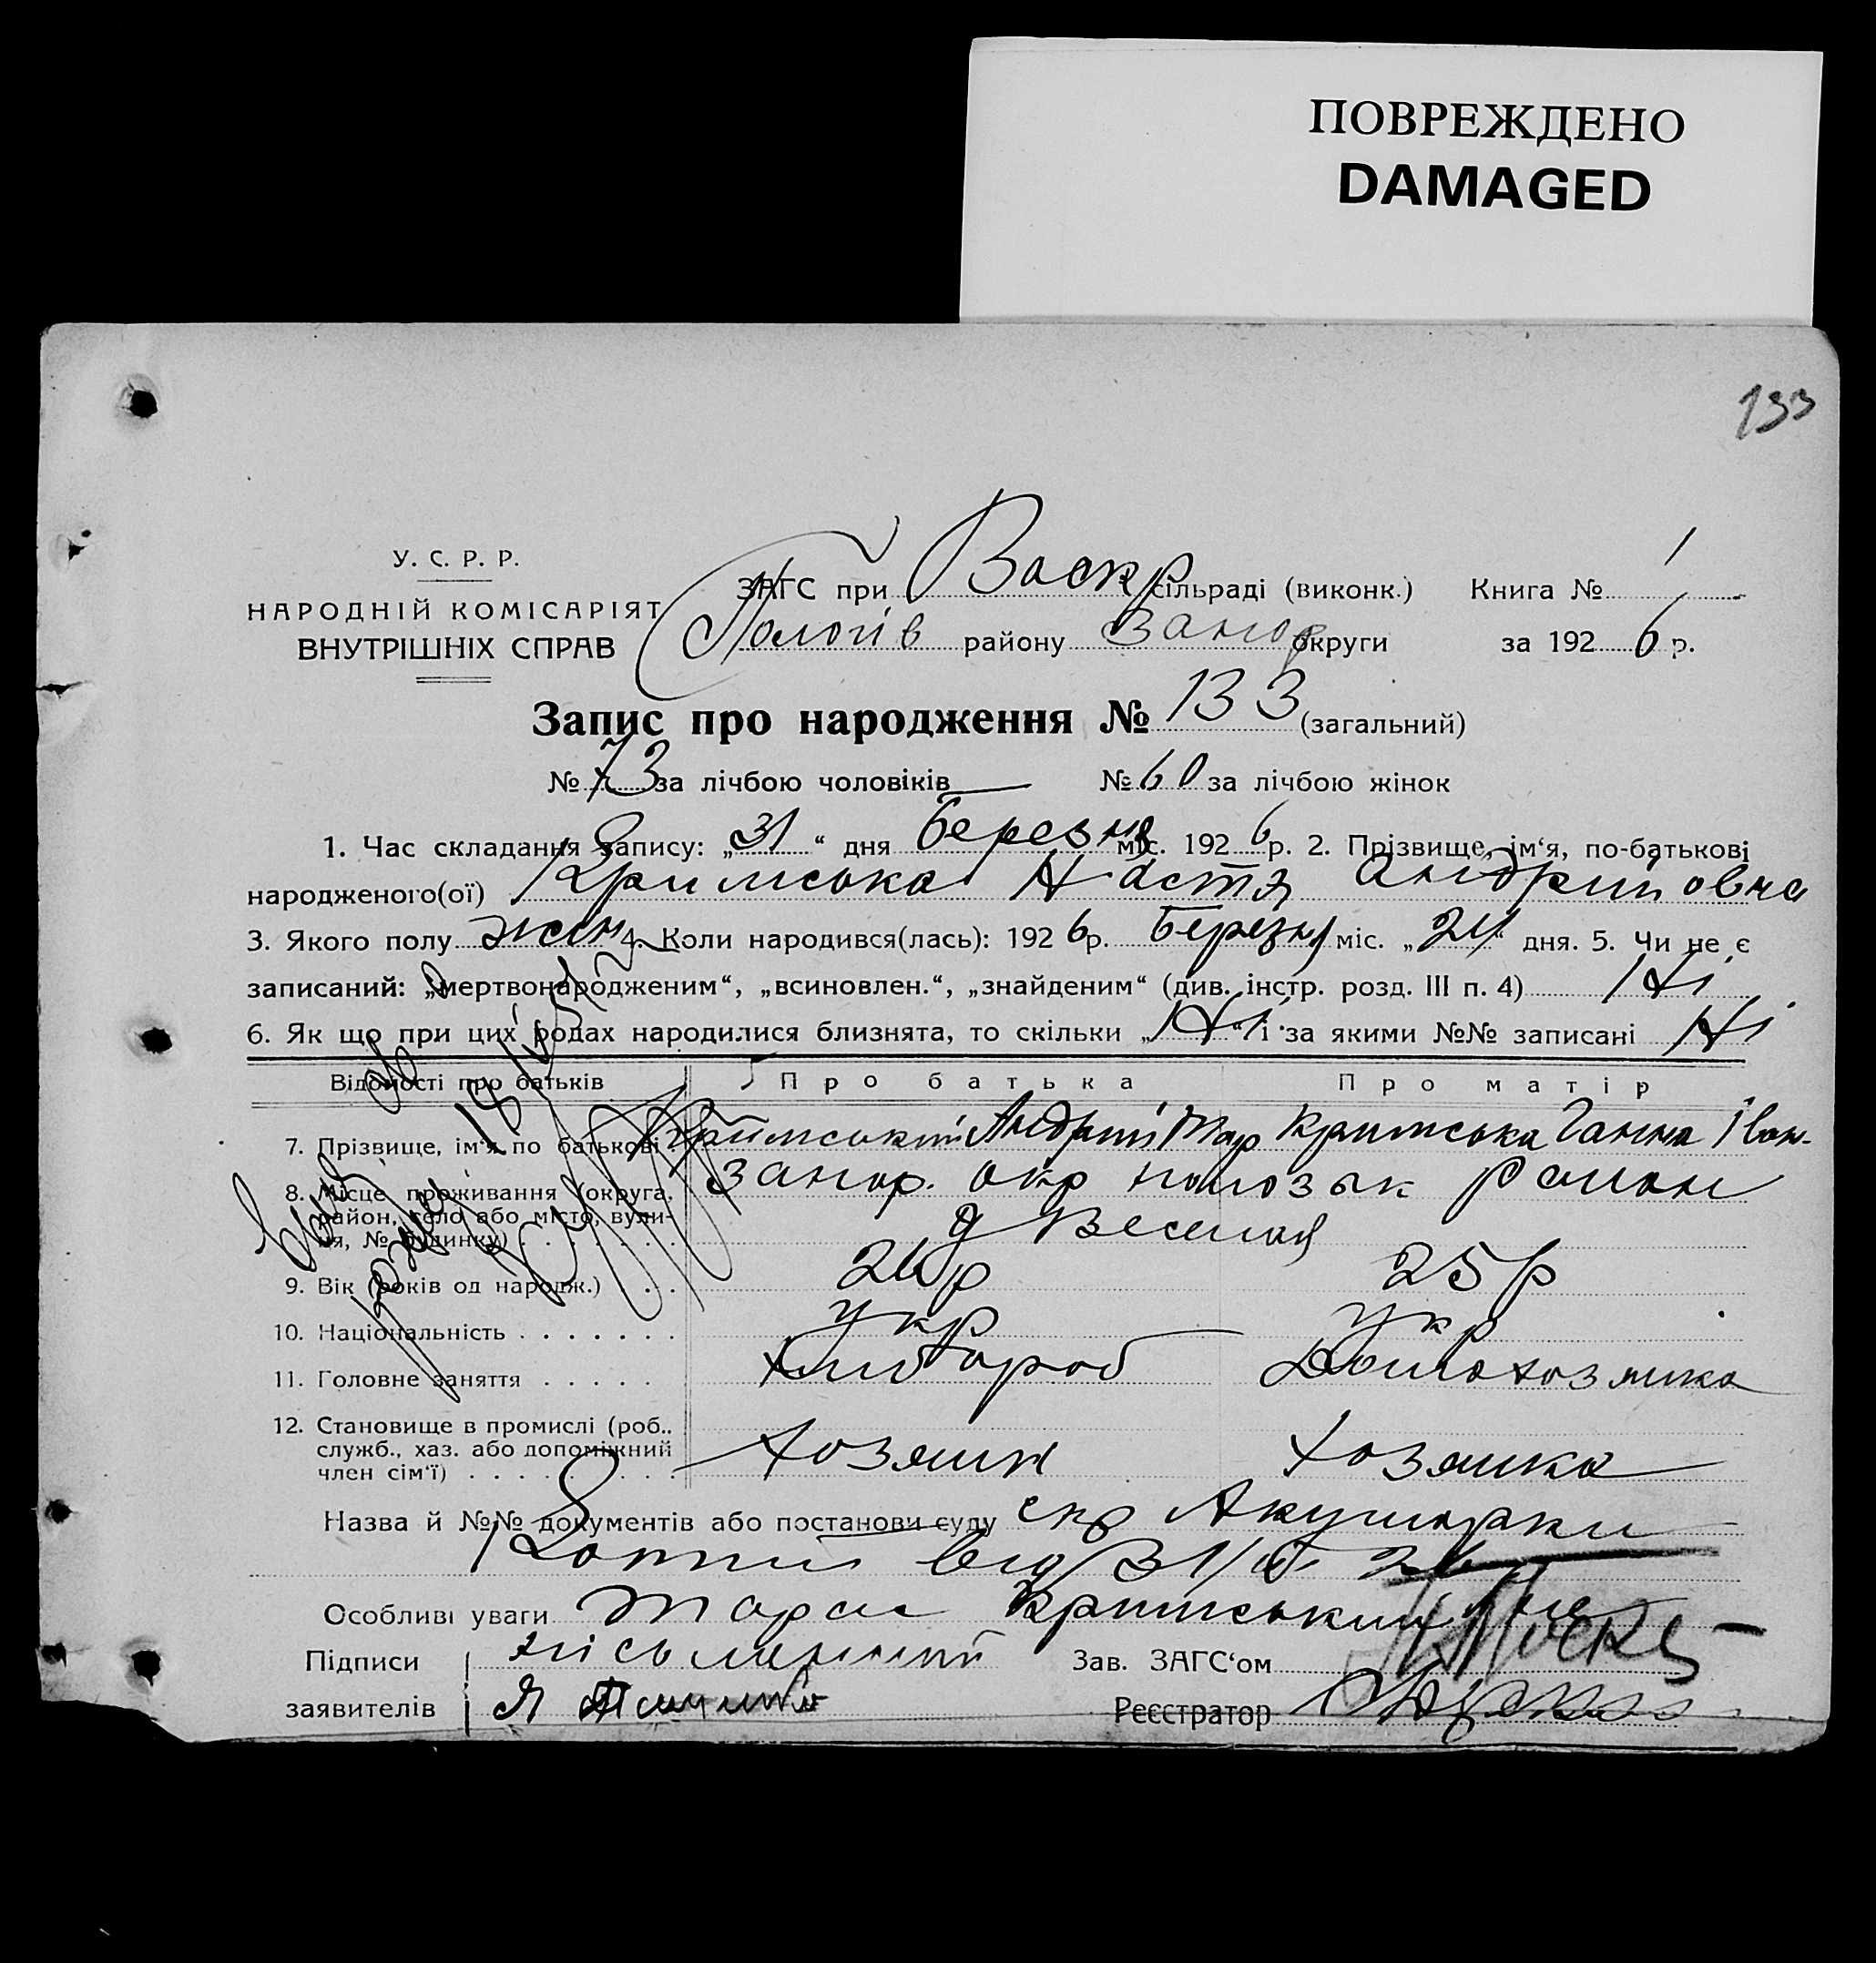 ПОВРЕЖДЕНО
DAMAGED
133
У. С. Р. Р.
НАРОДНІЙ КОМІСАРІЯТ
ВНУТРІШНІХ СПРАВ
ЗАГС при Васкр сільраді (виконк.) Книга № 1
Пологів району Запор округи за 1926 р.
Запис про народження № 133 (загальний)
№ 73 за лічбою чоловіків — № 60 за лічбою жінок
1. Час складання запису: „31“ дня березня міс. 1926 р. 2. Прізвище, ім‘я, по-батькові
народженого(ої) Кримська Настя Андрийовна
3. Якого полу жін 4. Коли народився(лась): 1926 р. Березня міс. „24“ дня. 5. Чи не є
записаний: „мертвонародженим“, „всиновлен.“, „знайденим“ (див. інстр. розд. III п. 4) Ні
6. Як що при цих родах народилися близнята, то скільки „Ні“ і за якими №№ записані Ні
Відомості про батьків Про батька Про матір
7. Прізвище, ім‘я по батькові Кримський Андрий Тар Кримська Ганна Іван-
8. Місце проживання (округа, район, село або місто, вулиця, № будинку) Запор. окр район
Веселая
9. Вік (років од народж.) 26 р 25 р
10. Національність укр укр
11. Головне заняття Хлібороб Домохозяйка
12. Становище в промислі (роб., служб., хаз. або допоміжний член сім‘ї) Хозяин Хозяйка
Назва й №№ документів або постанови суду Акушорки
від 31/III 26
Особливі уваги Тарас Кримський
Підписи письменний Зав. ЗАГС‘ом
заявителів Я Реєстратор